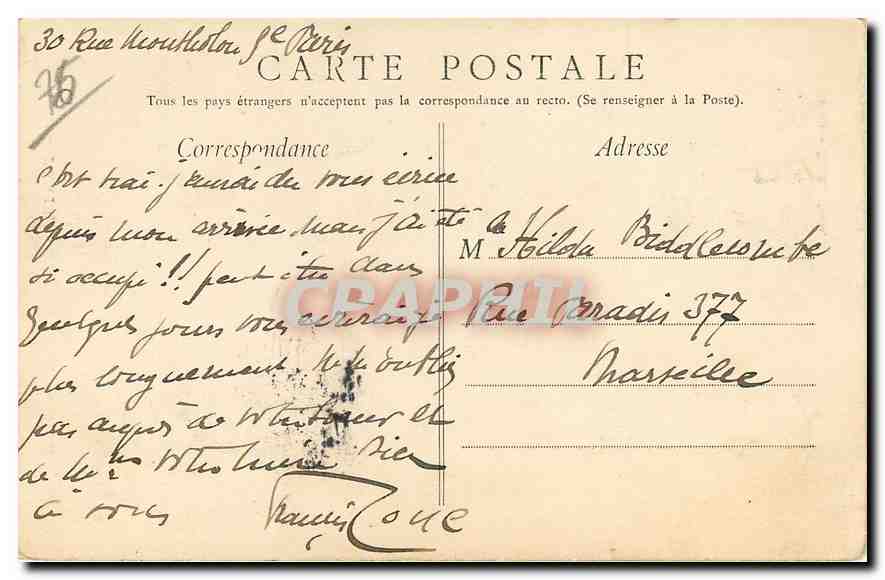 30 Rue Montholon 9e Paris
75
CARTE POSTALE
Tous les pays étrangers n'acceptent pas la correspondance au recto. (Se renseigner à la Poste).
Correspondance
Adresse
c'est vrai. j'aurai du vous écrire
depuis mon arrivée mais j'ai été
si occupé!! peut être dans
quelques jours vous écrirai je
plus longuement. Ne m'oubliez
pas auprès de votre soeur et
de votre mère Bien
à vous Francis
M lle Hilda Biddlecombe
Rue Paradis 377
Marseille
CPAPHIL